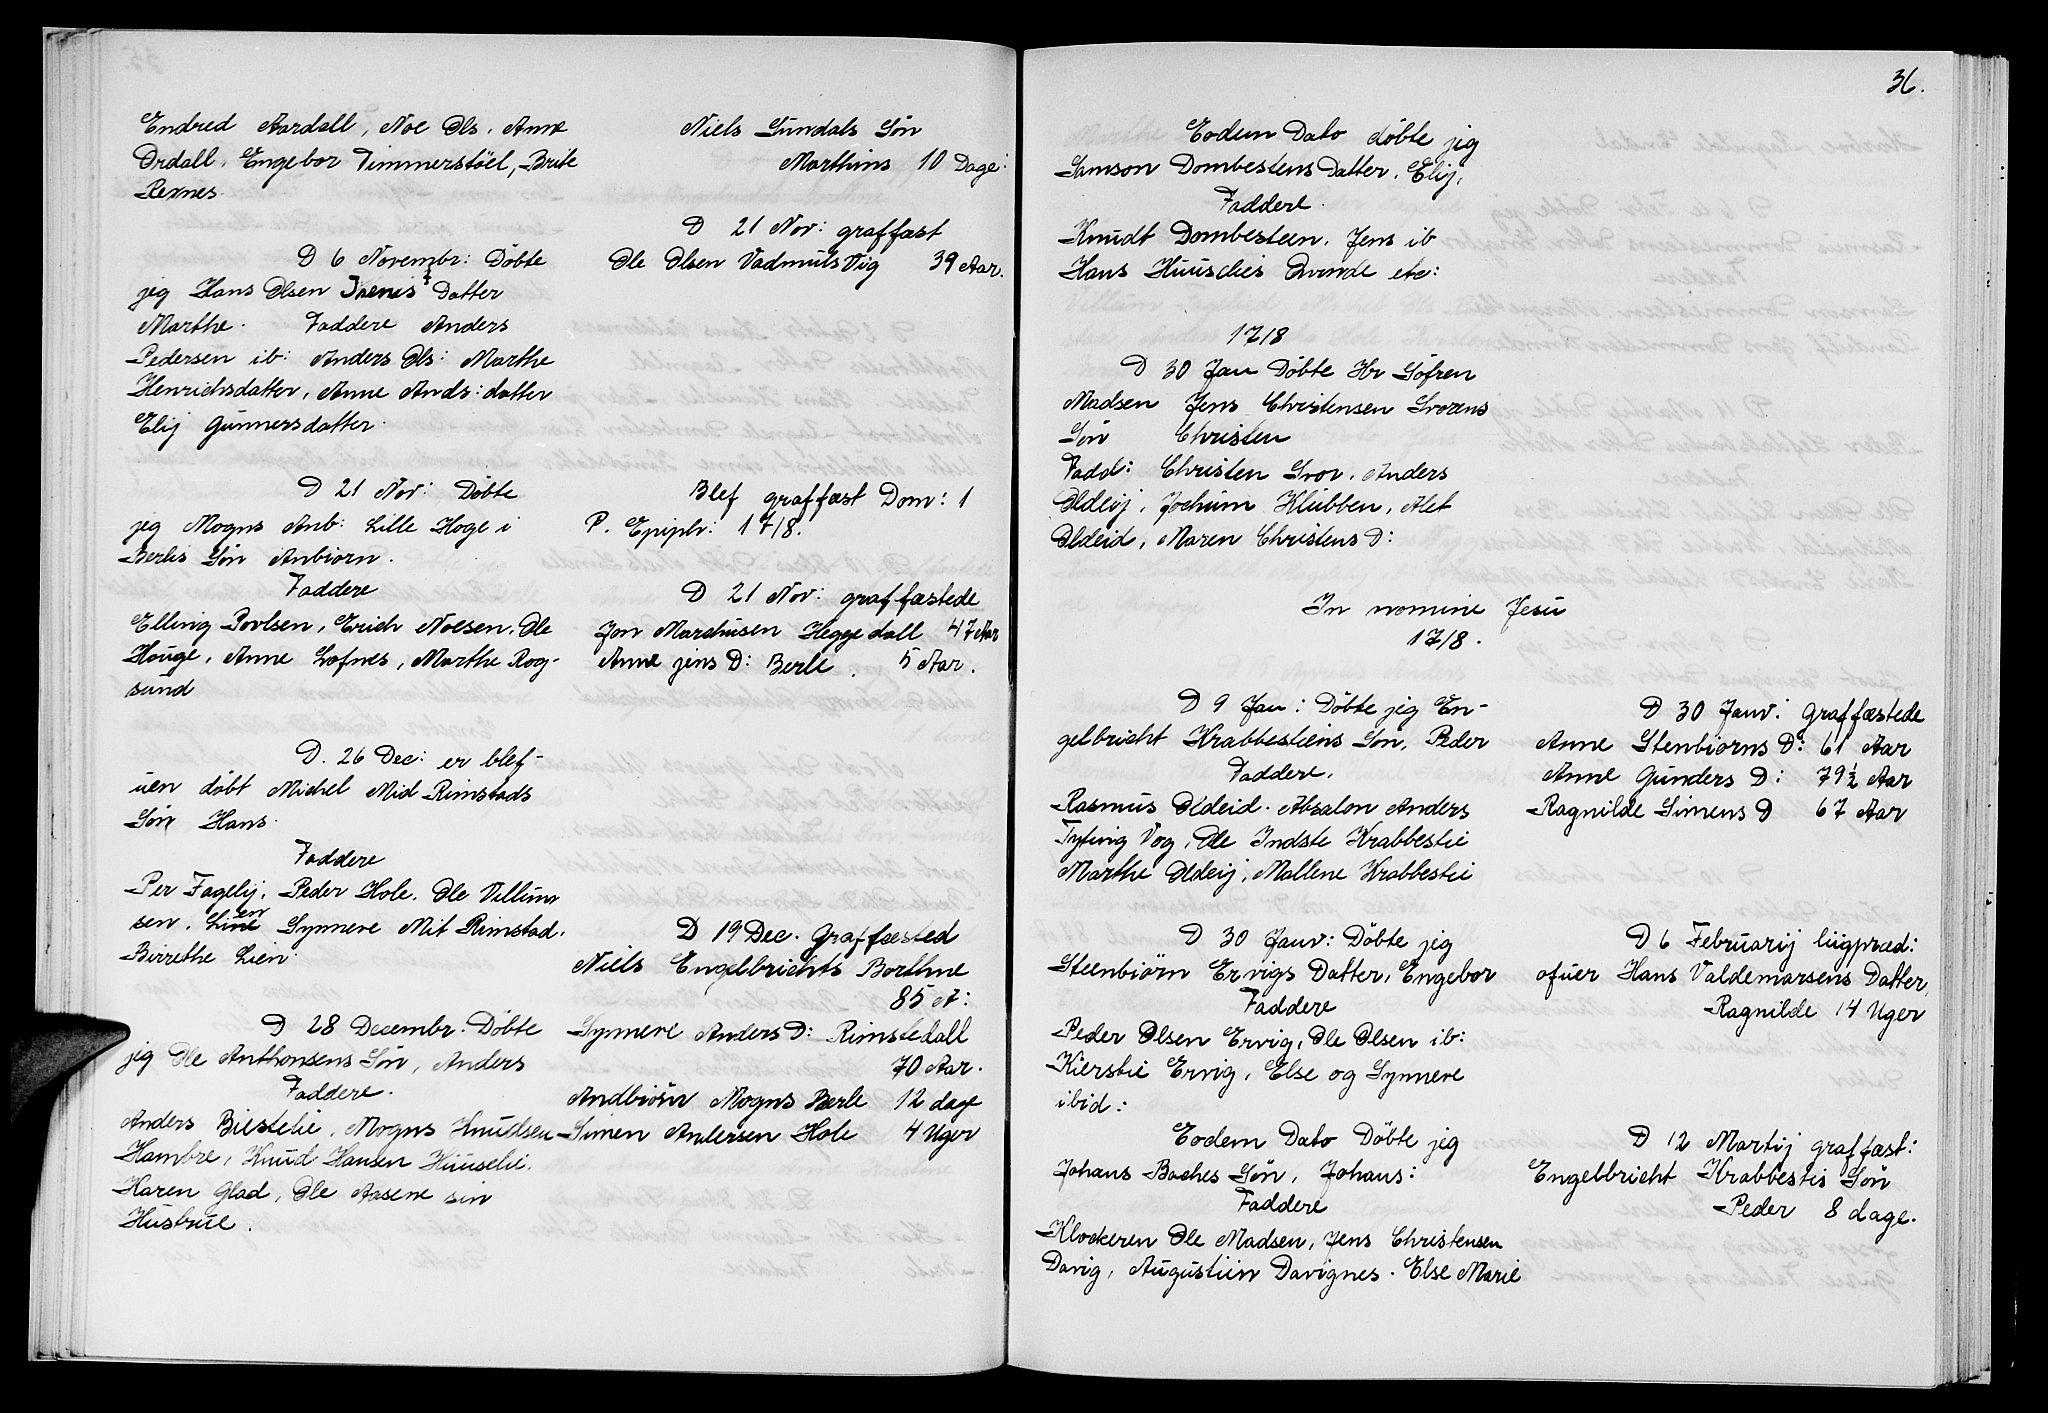 Endred Aardall, Noe Ols. Anne
Ordall, Engebor Timmerstöel, Brite
Rexnes.
D 6 Novembr: Döbte
jeg Hans Olsen Datter
Marthe. Faddere Anders
Pedersen ib: Anders Ols: Marthe
Henrichsdatter, Anne Ands: datter
Elij Gunnersdatter.
D 21 Nov: Döbte
jeg Mogns Anb: Lille Hoge i
Berles Sön Anbiorn.
Faddere
Elling Povlsen, Erich Noesen. Ole
Houge, Anne Lofnes, Marthe Rog-
sund
D. 26 Dec: er blef-
uen döbt Michel Mid Rimstads
Sön Hans.
Faddere
Per Fagelij, Peder Hole. Ole Villum
sen. Synnere Mit Rimstad.
Birrethe Lien.
D 28 Decembr. Döbte
jeg Ole Anthonsens Sön, Anders
Faddere.
Anders Biestelie, Mogns Knudsen
Hambre, Knud Hansen Huuselie.
Karen Glad, Ole Aasene sin
Hustrue.
Niels Sundals Sön
Marthins 10 Dage:
D 21 Nov: graffæst
Ole Olsen Vadmuls Vig 39 Aar.
Blef graffæst Dom: 1
P. Epiph: 1718.
D 21 Nov: graffæstede
Jon Marchusen Heggedall 47 Aar
Anne jens D: Berle. 5 Aar.
D 19 Dec. Graffæsted
Niels Engelbrichts Borthne
85 A:
Synnere Anders D: Rimstedall
70 Aar.
Andbiörn Mogns Berle 12 dage
Simen Andersen Hole 4 Uger
36.
Eodem Dato döbte jeg
Samson Dombestens Datter, Elij.
Faddere.
Knudt Dombesteen. Jens ib
Hans Huuselies Qvinde etc:
1718
D 30 Jan Döbte Hr Söfren
Madsen Jens Christensen Srorens
Sön Christen
Fadd: Christen Sror. Anders
Oldeij, Jochum Klubben, Alet
Oldeid, Maren Christens D:
In nomine Jesu
1718.
D 9 Jan: Döbte jeg En-
gelbricht Krabbestiens Sön, Peder
Faddere.
Rasmus Oldeid. Absalon Anders
Tyting Vog, Ole Indste Krabbestie
Marthe Oldeij, Mallene Krabbestie
D 30 Janv: Döbte jeg
Steenbiörn Ervigs Datter, Engebor
Faddere
Peder Olsen Ervig, Ole Olsen ib:
Kierstie Ervig, Else og Synnere
ibid:
Eodem Dato Döbte jeg
Johans Baches Sön, Johans:
Faddere
Klockeren Ole Madsen, Jens Christensen
Davig, Augustien Davignes. Else Marie
D 30 Janv: graffæstede
Anne Stenbiorns D: 61 Aar
Anne Gunders D: 79½ Aar
Ragnilde Simens D 67 Aar
D 6 Februarij liigpræd:
ofuer Hans Valdemarsens Datter,
Ragnilde 14 Uger
D 12 Martij graffæst:
Engelbricht Krabbestis Sön
Peder 8 dage.